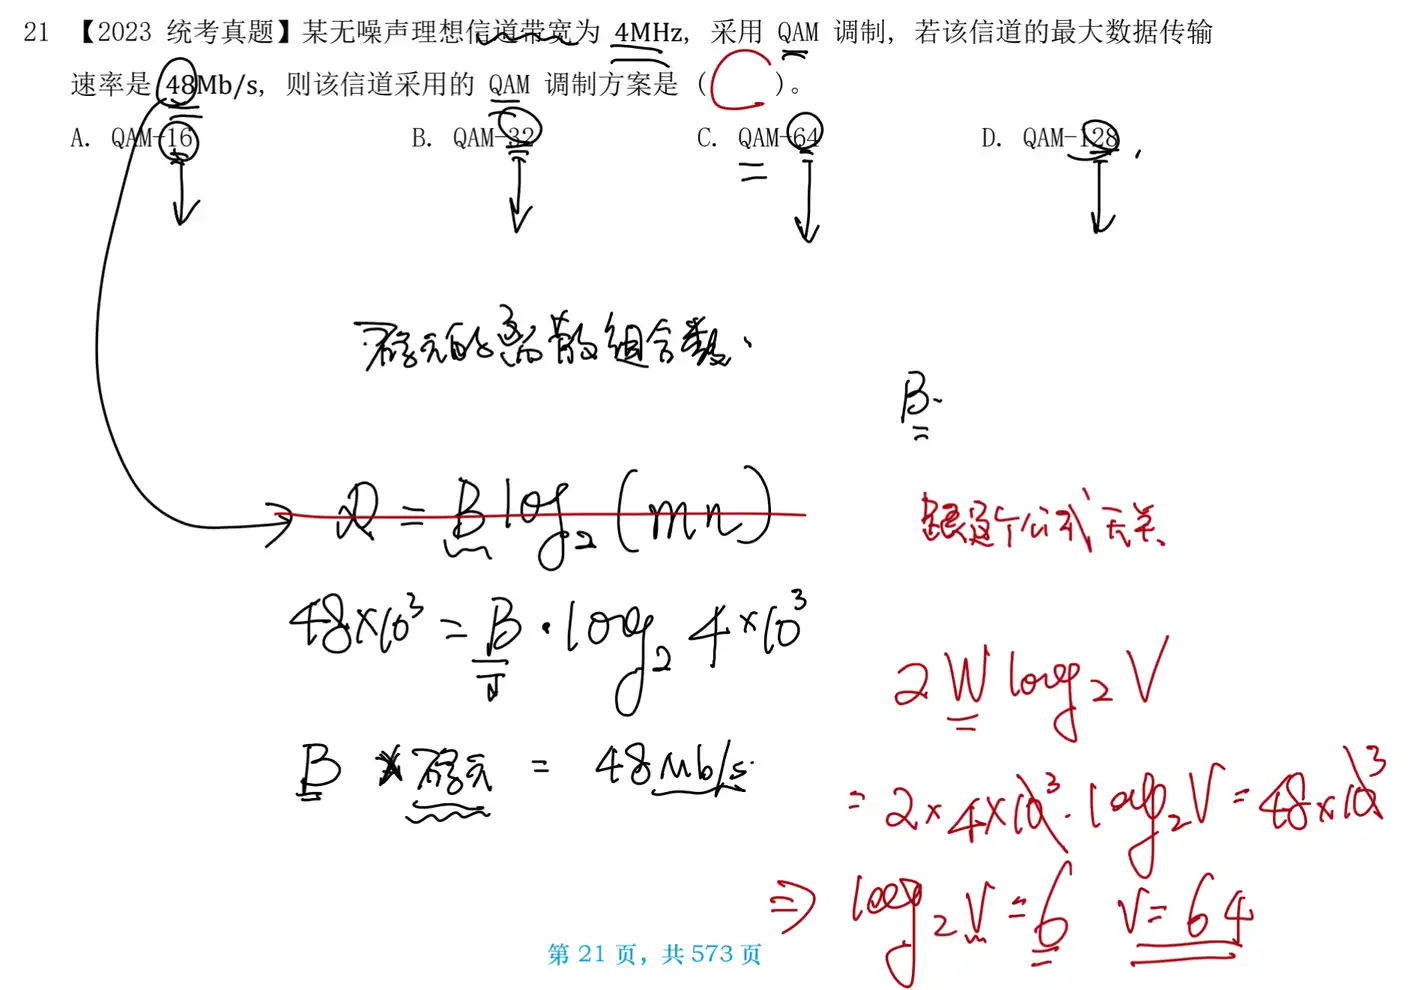 21 【2023 统考真题】某无噪声理想信道带宽为 4MHz, 采用 QAM 调制, 若该信道的最大数据传输
速率是 48Mb/s, 则该信道采用的 QAM 调制方案是 ( C )。
A. QAM-16 B. QAM-32 C. QAM-64 D. QAM-128
码元的离散组合数.
B.
R = B log₂ (mn)
跟这个公式无关
48×10³ = B · log₂ 4×10³
2W log₂ V
B × 码元 = 48Mb/s.
= 2×4×10³ · log₂V = 48×10³
⇒ log₂V = 6 V = 64
第 21 页, 共 573 页